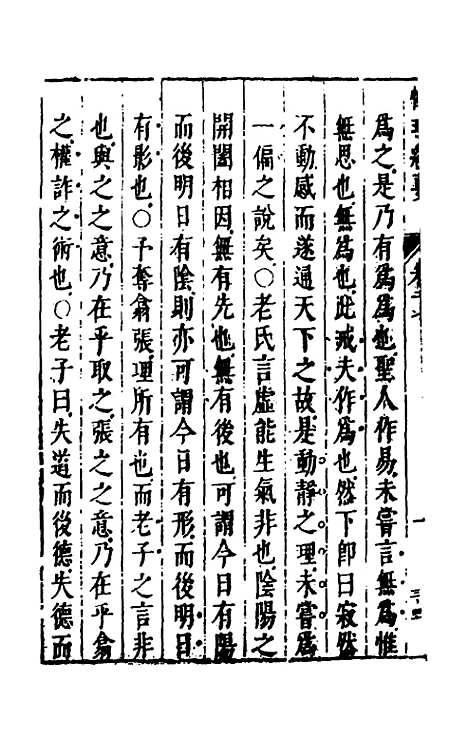 為之是乃有為為也聖人作易未嘗言無為惟
無思也無為也此戒夫作為也然下即曰寂然
不動感而遂通天下之故是動靜之理未嘗為
一偏之說矣○老氏言虛能生氣非也陰陽之
開闔相因無有先也無有後也可謂今日有陽
而後明日有陰則亦可謂今日有形而後明日
有影也○予奪翕張理所有也而老子之言非
也與之之意乃在乎取之張之之意乃在乎翕
之權詐之術也○老子曰失道而後德失德而